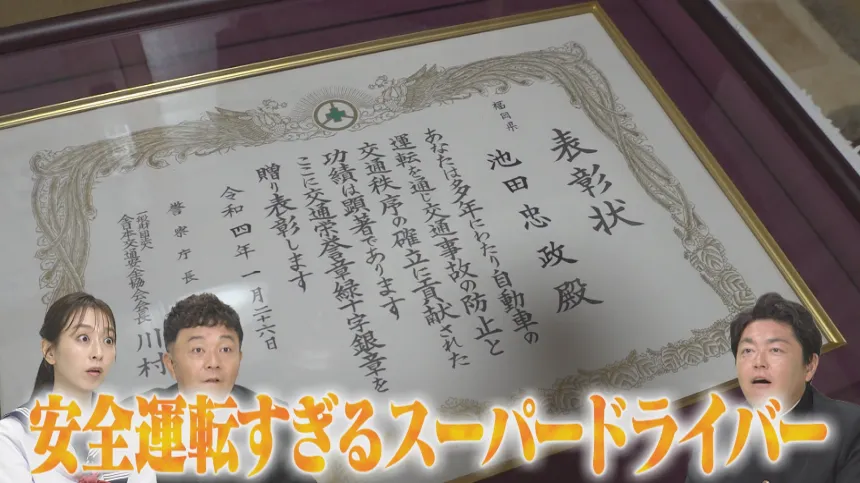 表彰状
福岡県
池田忠政殿
あなたは多年にわたり自動車の
運転を通じ交通事故の防止と
交通秩序の確立に貢献された
功績は顕著であります
ここに交通栄誉章緑十字銀章を
贈り表彰します
令和四年一月二十六日
警察庁長
一般財団法人
全日本交通安全協会会長 川村
安全運転すぎるスーパードライバー